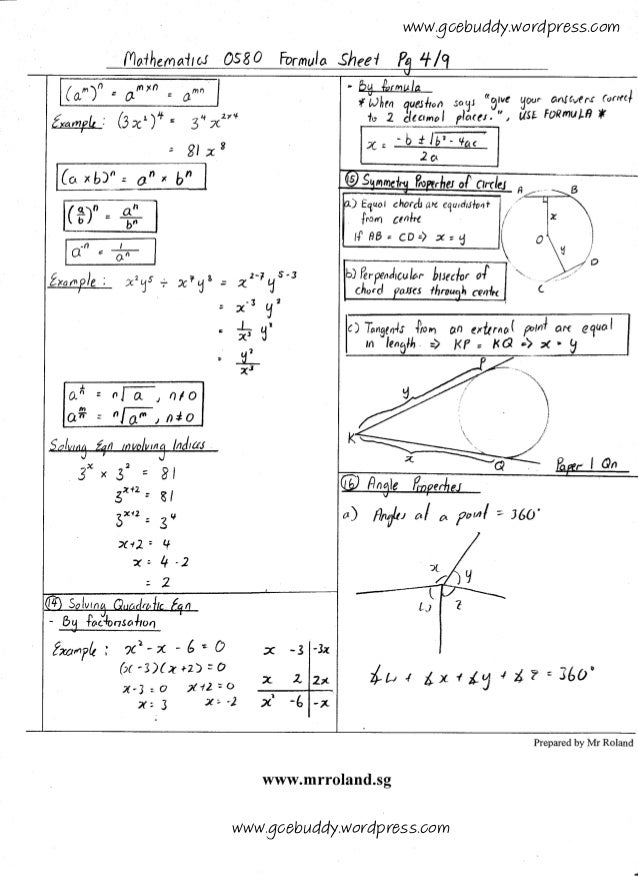 www.gcebuddy.wordpress.com
Mathematics 0580 Formula Sheet Pg 4/9
(a^m)^n = a^(m×n) = a^(mn)
Example: (3x²)⁴ = 3⁴ x^(2×4)
= 81 x⁸
(a × b)^n = a^n × b^n
(a/b)^n = a^n/b^n
a^-n = 1/a^n
Example: x²y⁵ ÷ x⁷y³ = x^(2-7) y^(5-3)
= x^-3 y²
= 1/x³ y²
= y²/x³
a^(1/n) = n√a, n≠0
a^(m/n) = n√a^m, n≠0
Solving Eqn involving Indices
3^x × 3² = 81
3^(x+2) = 81
3^(x+2) = 3⁴
x+2 = 4
x = 4 - 2
= 2
⑭ Solving Quadratic Eqn
- By factorisation
Example: x² - x - 6 = 0
(x-3)(x+2) = 0
x-3 = 0 x+2 = 0
x = 3 x = -2
x -3 -3x
x 2 2x
x² -6 -x
- By formula
* When question says "give your answers correct
to 2 decimal places.", USE FORMULA *
x = (-b ± √(b² - 4ac))/2a
⑮ Symmetry Properties of Circles
a) Equal chords are equidistant
from centre
If AB = CD => x = y
b) Perpendicular bisector of
chord passes through centre
A B
x
O
y
D
C
c) Tangents from an external point are equal
in length. => KP = KQ => x = y
P
y
K
x
Q
Paper 1 Qn
⑯ Angle Properties
a) Angles at a point = 360°
x
y
w
z
∡w + ∡x + ∡y + ∡z = 360°
Prepared by Mr Roland
www.mrroland.sg
www.gcebuddy.wordpress.com